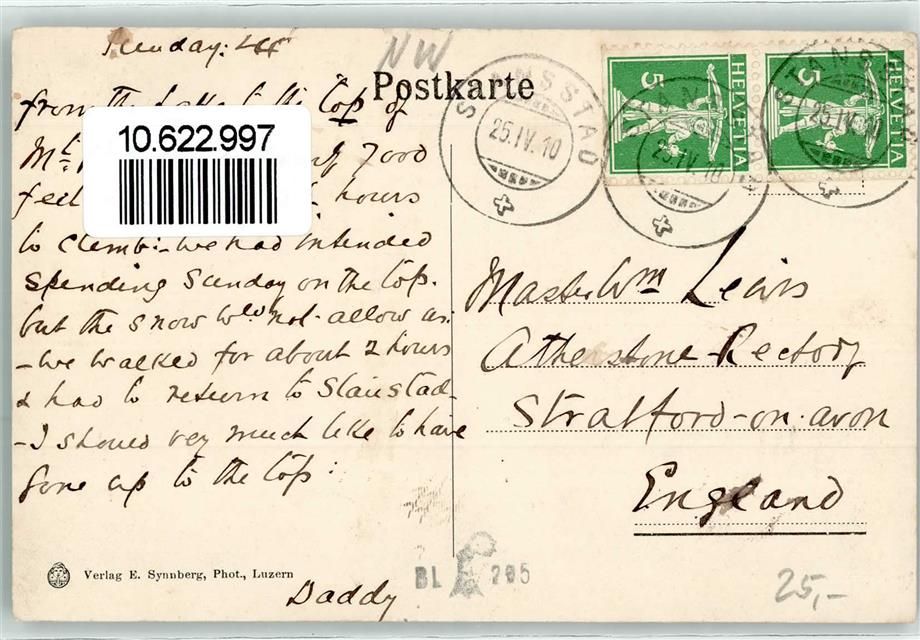 Sunday: 24
NW
Postkarte
from the Lake to the top of
Mt 7000
feet hours
to climb:- we had intended
spending Sunday on the top.
but the snow wld not allow us.
- we walked for about 2 hours
& had to return to Stanstad-
- I should very much like to have
gone up to the top:
Daddy
10.622.997
STANSSTAD
25.IV.10
5 HELVETIA
STANSSTAD
25.IV.10
5 HELVETIA
STANSSTAD
25.IV.10
Master Wm Lewis
Atherstone Rectory
Stratford-on-avon
England
Verlag E. Synnberg, Phot., Luzern
BL 205
25,-